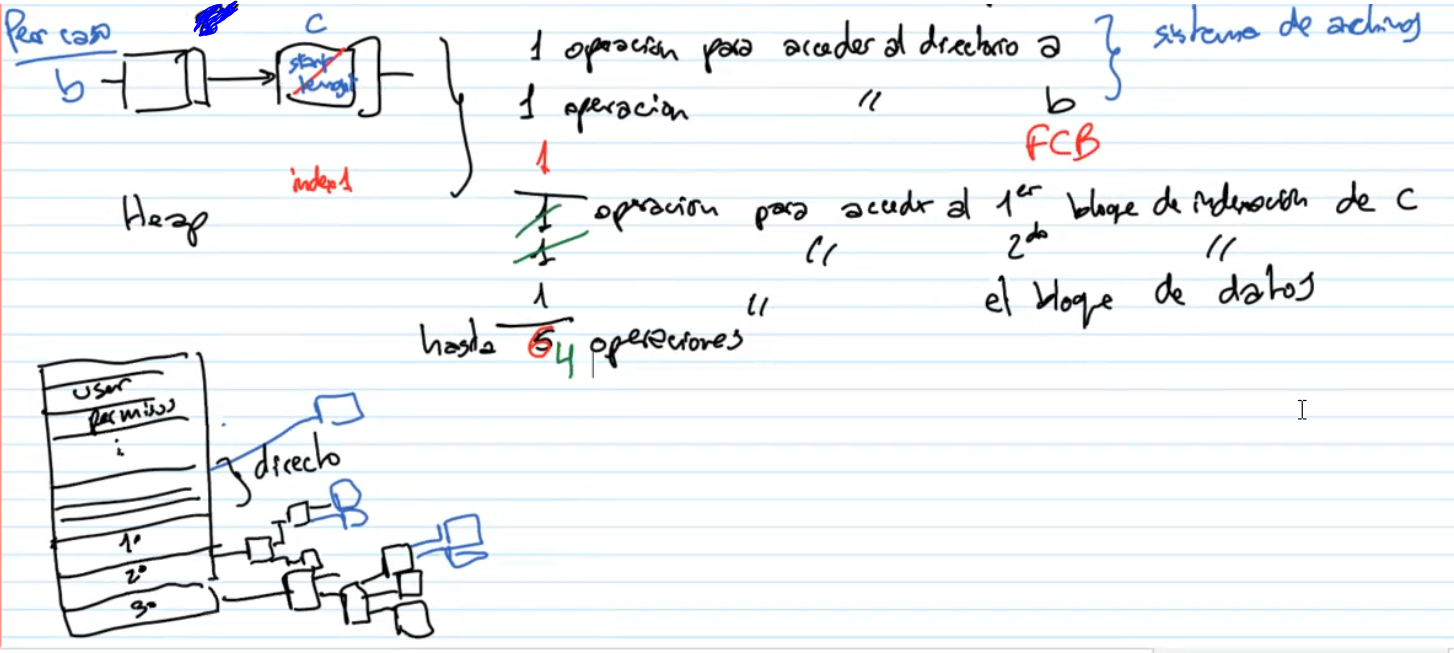 Peor caso
b
C
start
length
index1
Heap
1 operación para acceder al directorio a
1 operacion " b
sistema de archivos
FCB
1
1 operacion para acceder al 1er bloque de indexación de C
1 " 2do "
1 " el bloque de datos
hasta 5 4 operaciones
user
permisos
directo
1º
2º
3º